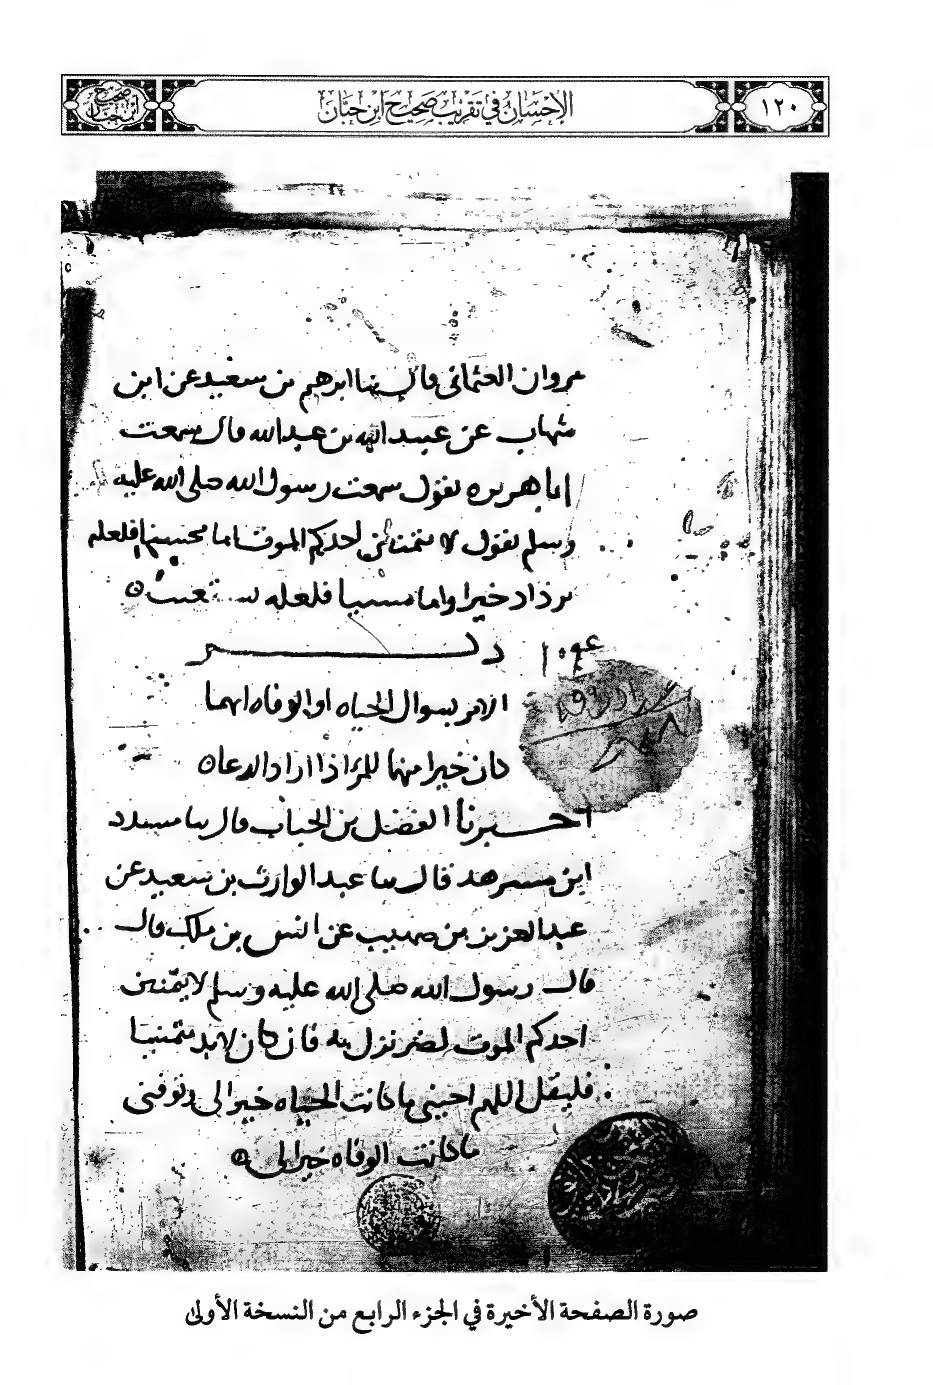 صحيح ابن حبان
الإحسان في تقريب صحيح ابن حبان
١٢٠
مروان العثماني قال ثنا ابرهيم بن سعيد عن ابن
شهاب عن عبيد الله بن عبد الله قال سمعت
اباهريره يقول سمعت رسول الله صلى الله عليه
وسلم يقول لا يتمنين احدكم الموت اما محسنا فلعله
يزداد خيرا واما مسيا فلعله يستعتب
ذكر
الامر بسوال الحياه او الوفاه ايهما
كان خيرا منهما للمرء اذا اراد الدعاء
اخبرنا الفضل بن الحباب قال ثنا مسدد
ابن مسرهد قال ثنا عبد الوارث بن سعيد عن
عبد العزيز بن صهيب عن انس بن ملك قال
قال رسول الله صلى الله عليه وسلم لا يتمنين
احدكم الموت لضر نزل به فان كان لابد متمنيا
فليقل اللهم احيني ما كانت الحياه خيرا لي وتوفني
ما كانت الوفاه خيرا لي
صورة الصفحة الأخيرة في الجزء الرابع من النسخة الأولى